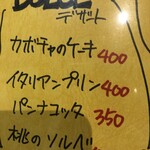 DOLCE
デザート
カボチャのケーキ 400
イタリアンプリン 400
パンナコッタ 350
桃のソルベ